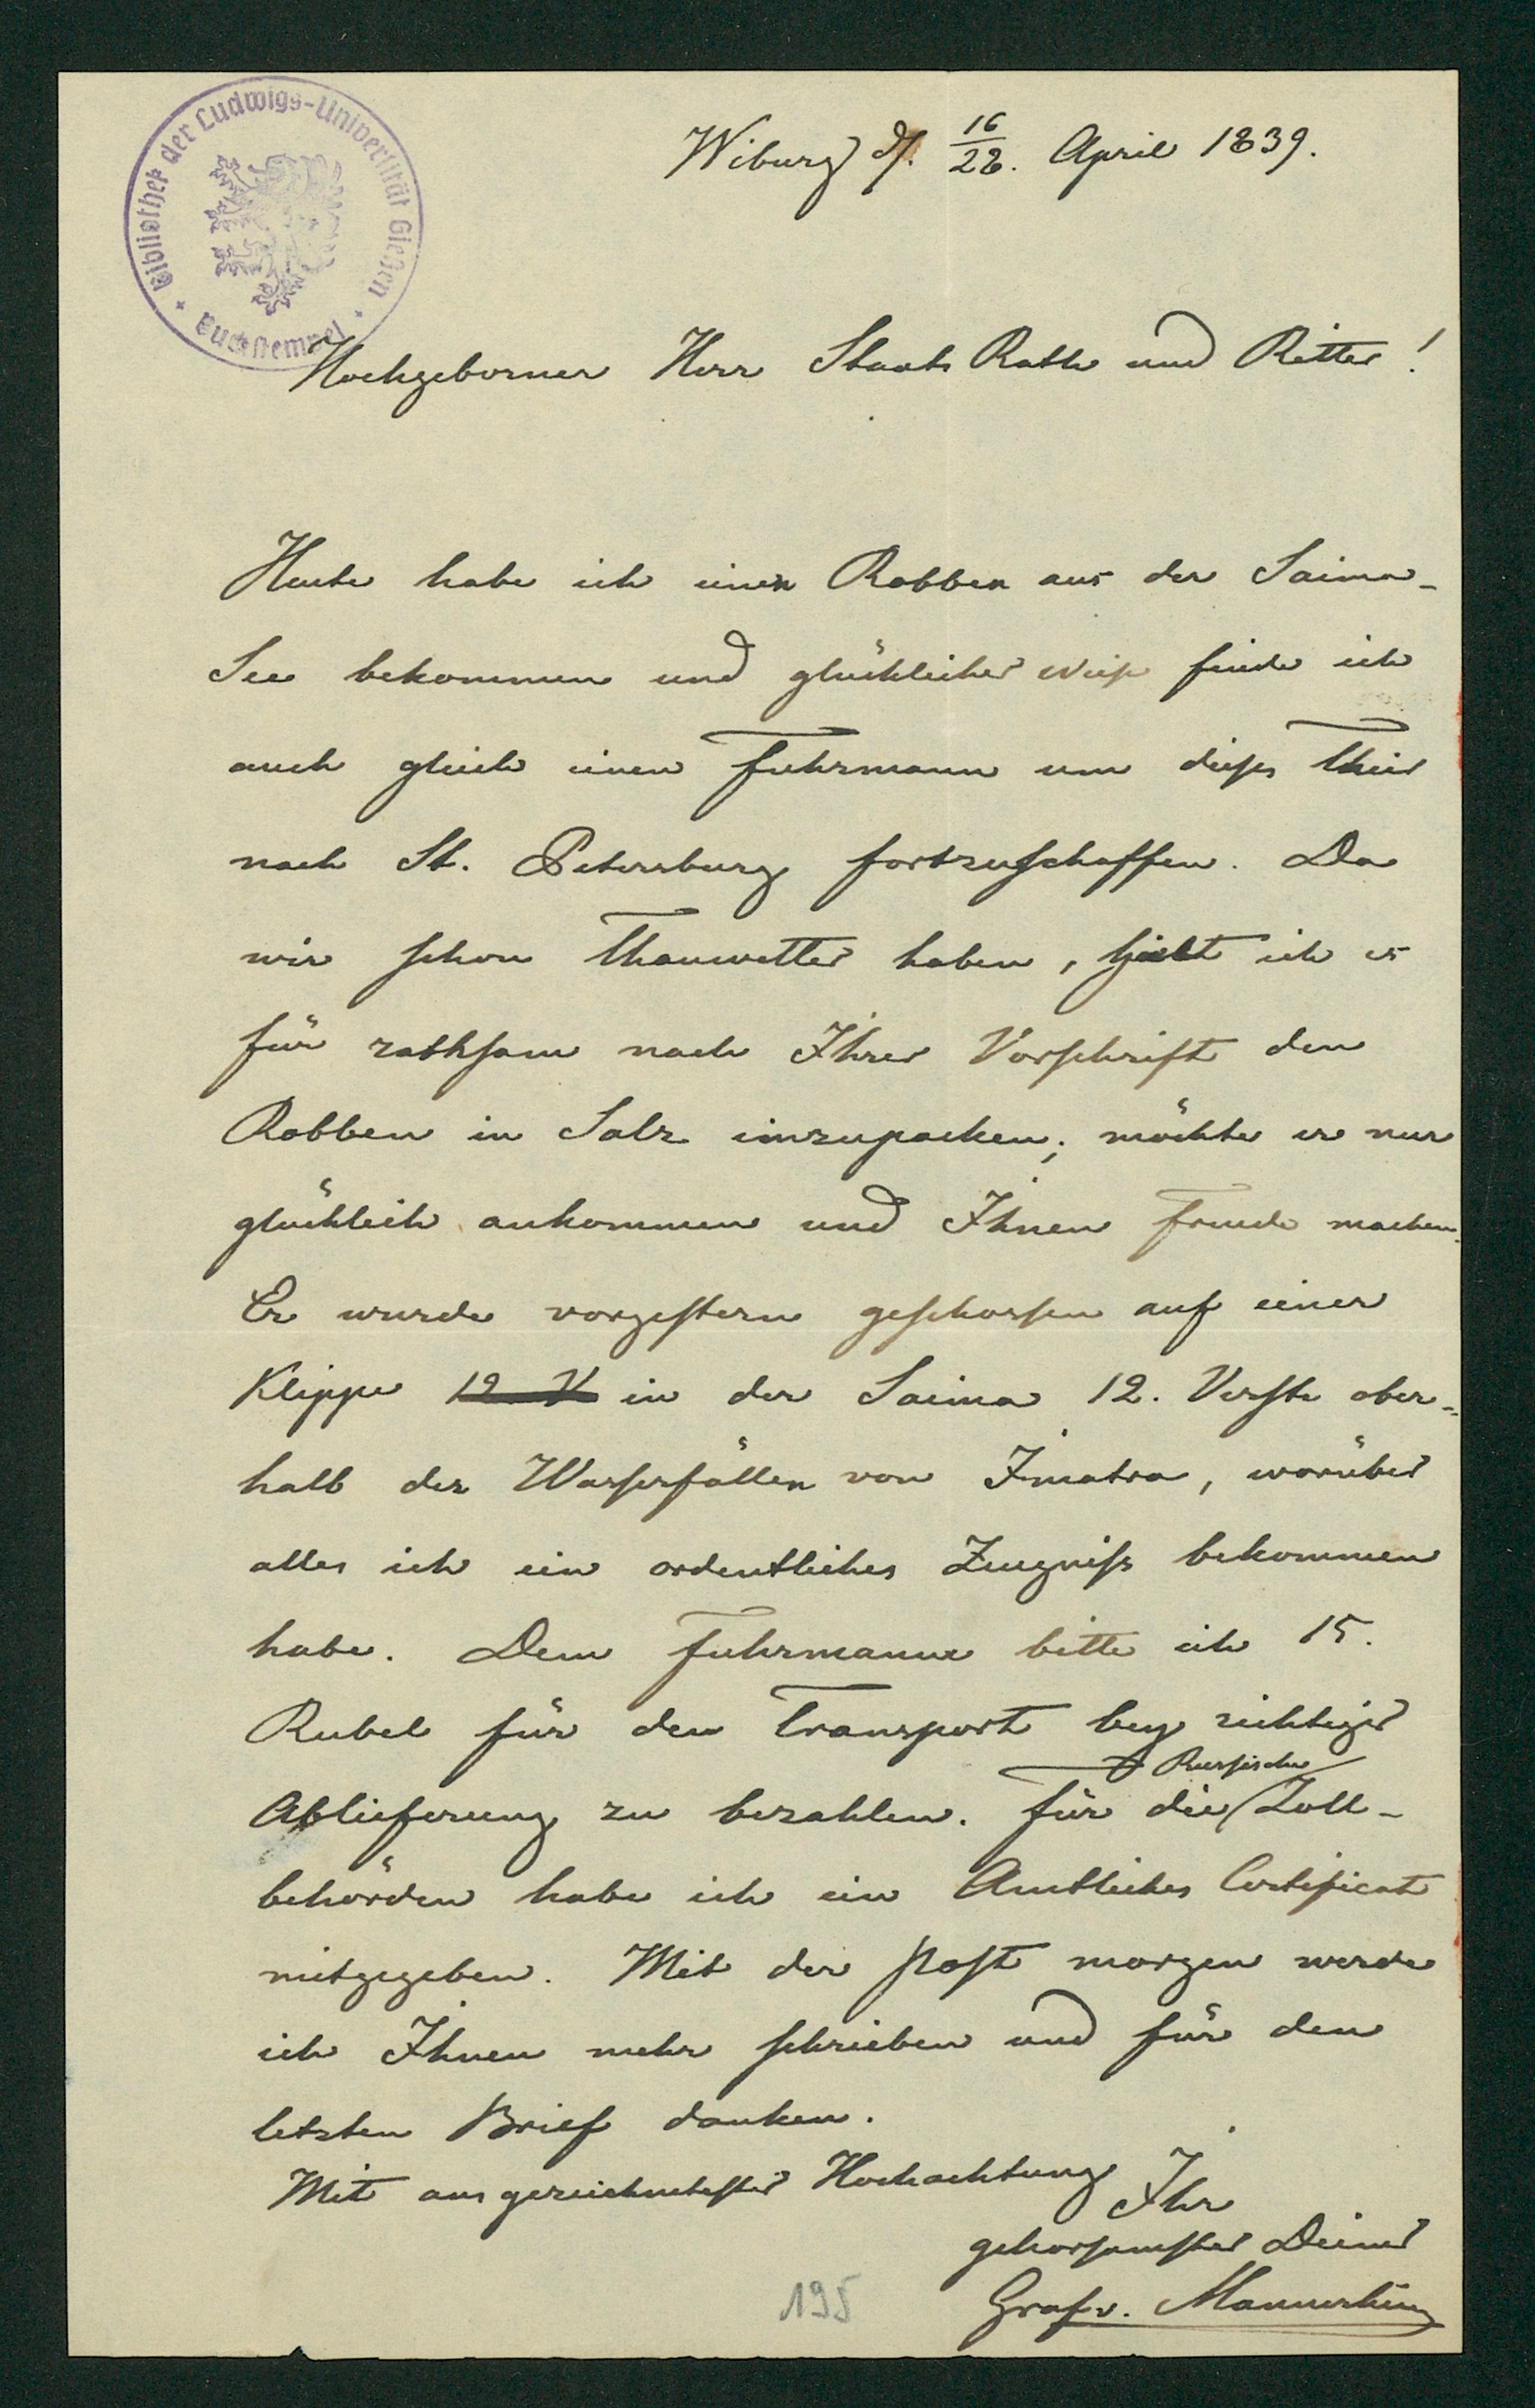 Bibliothek der Ludwigs-Universität Gießen
Druckstempel
Wiburg d. 16/28. April 1839.
Hochgeborner Herr Staats Rath und Ritter!
Heute habe ich einen Robben aus der Saima-
See bekommen und glücklicher weise finde ich
auch gleich einen Fuhrmann um dieses Thier
nach St. Petersburg fortzuschaffen. Da
wir schon Thauwetter haben, hielt ich es
für rathsam nach Ihrer Vorschrift den
Robben in Salz einzupacken; möchte er nur
glücklich ankommen und Ihnen Freude machen.
Er wurde vorgestern geschossen auf einer
Klippe 12 V in der Saima 12. Verste ober=
halb der Wasserfällen von Imatra, worüber
alles ich ein ordentliches Zeugniss bekommen
habe. Dem Fuhrmanne bitte ich 15.
Rubel für den Transport bey richtiger
Ablieferung zu bezahlen. Für die Russische Zoll-
behörden habe ich ein Amtliches Certificat
mitgegeben. Mit der Post morgen werde
ich Ihnen mehr schrieben und für den
letzten Brief danken.
Mit ausgezeichnetster Hochachtung Ihr
gehorsamster Diener
Graf v. Mannerheim
195